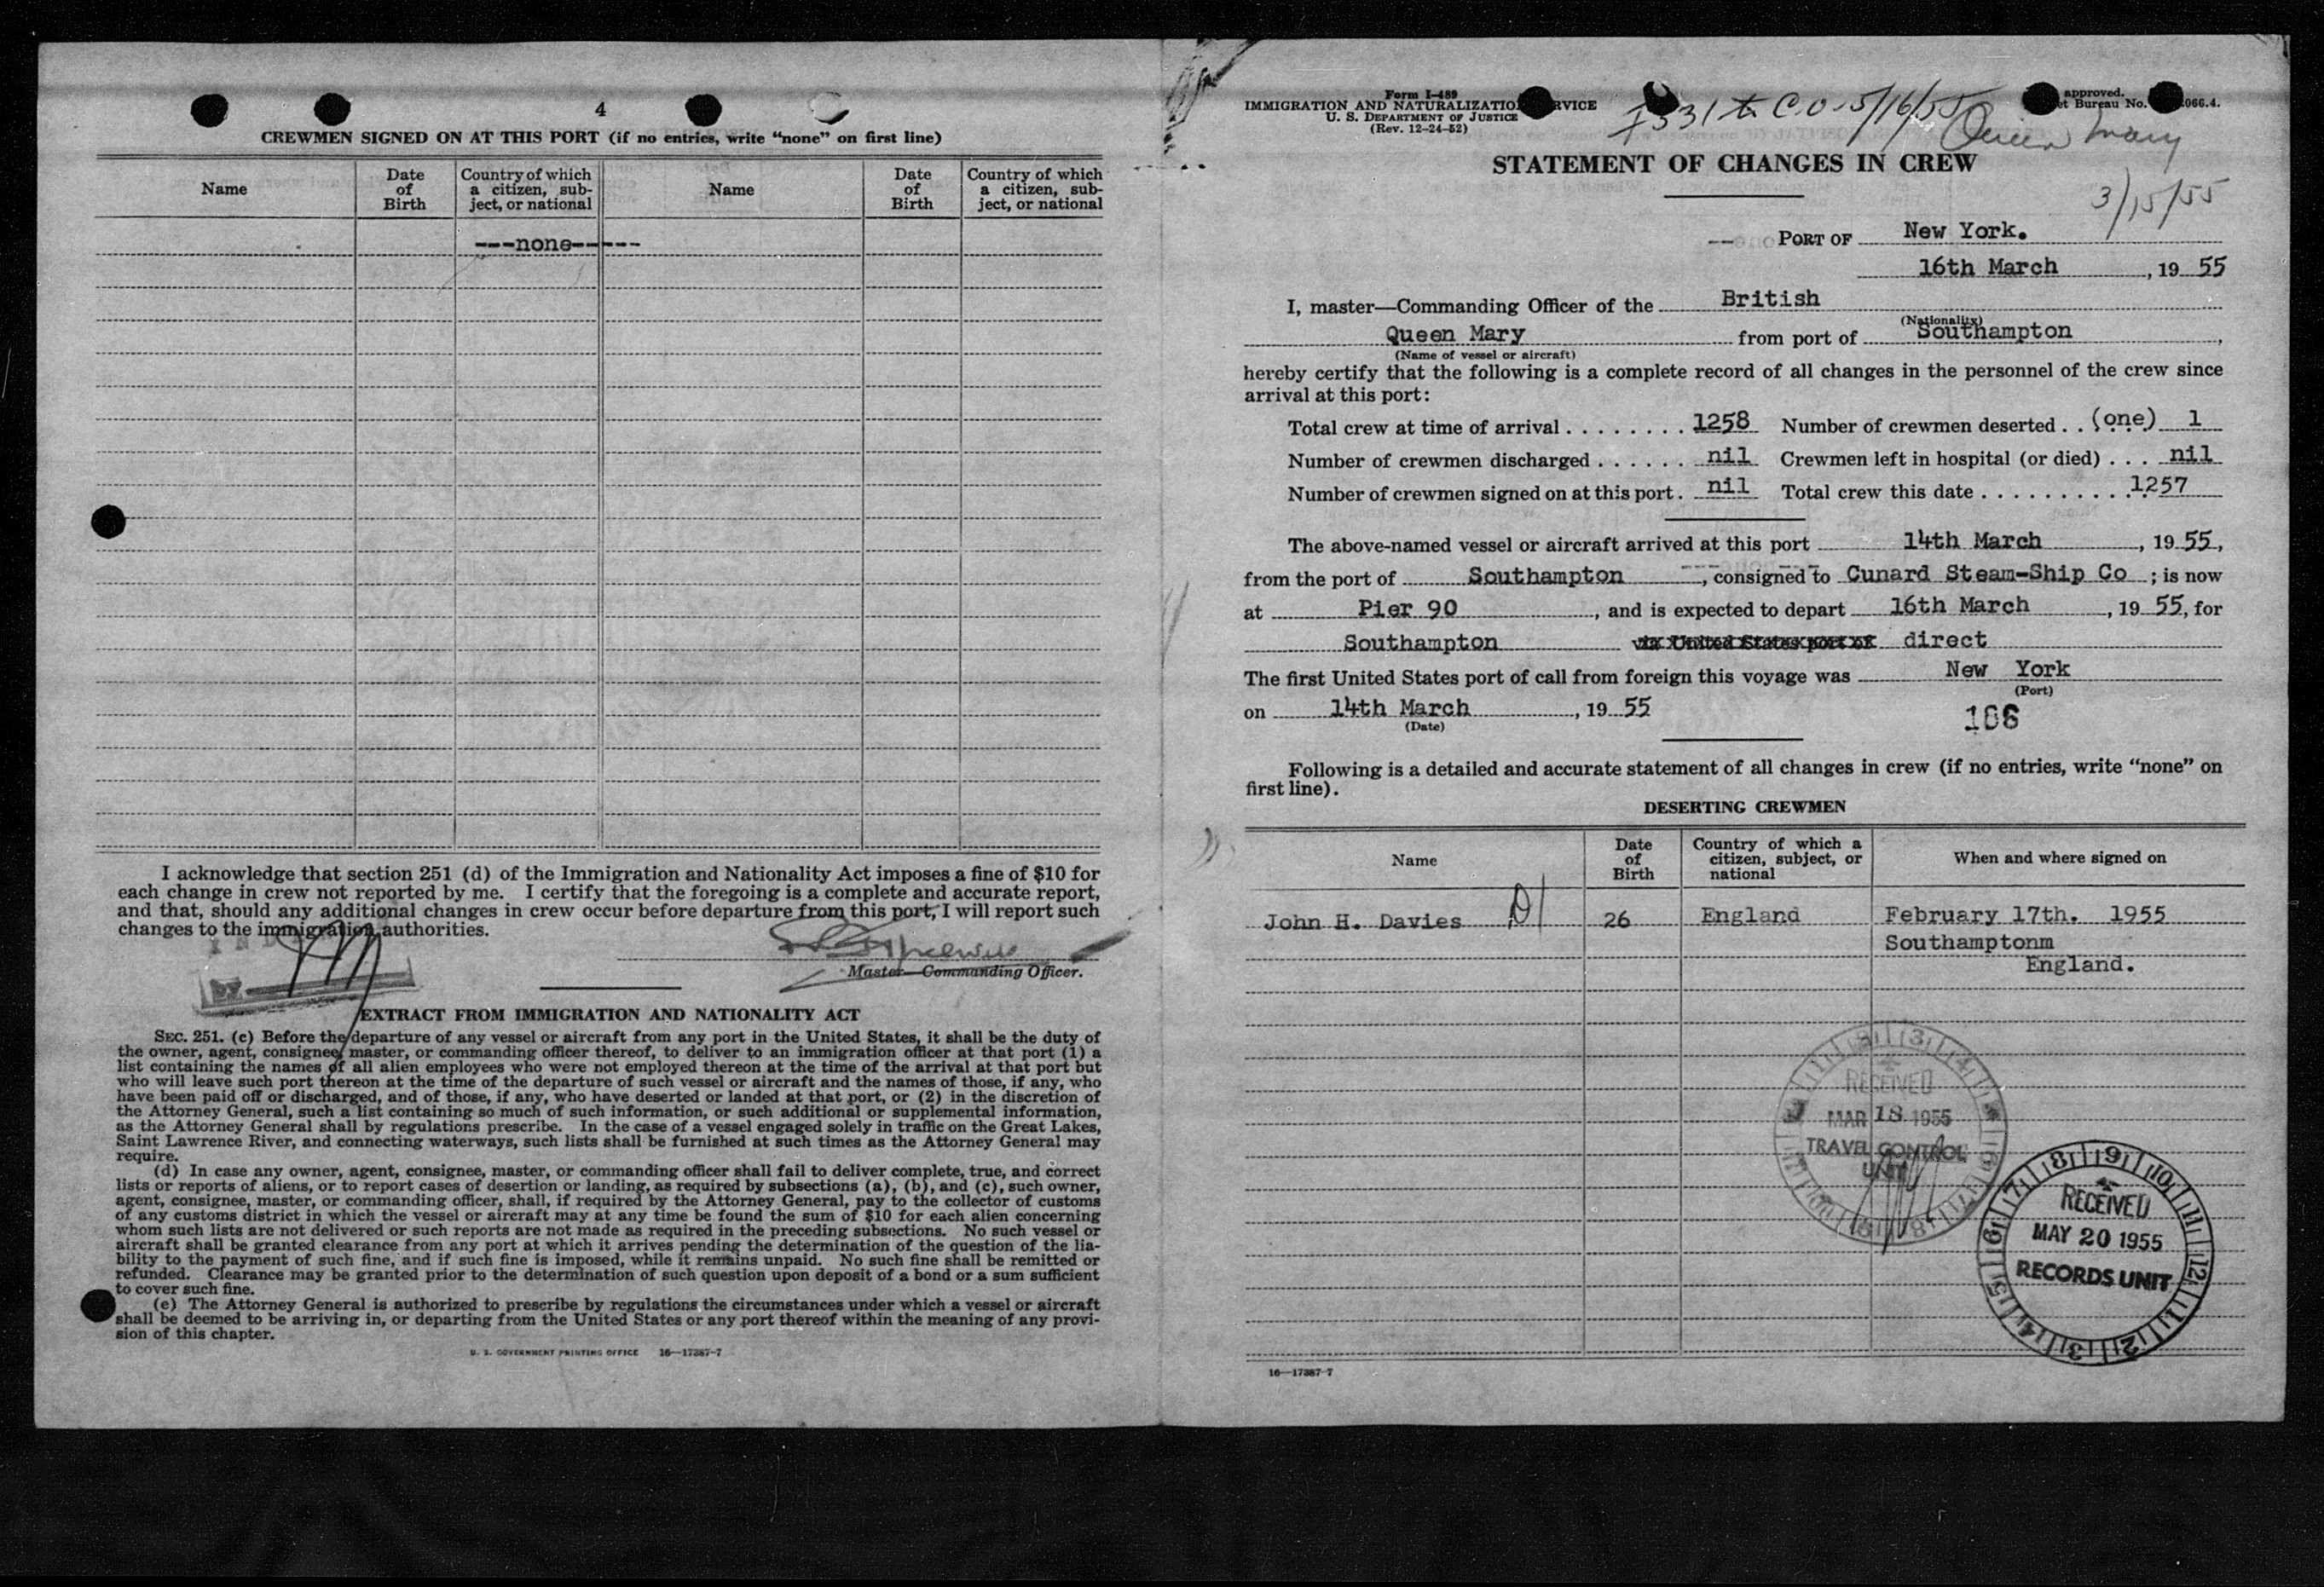 4
CREWMEN SIGNED ON AT THIS PORT (if no entries, write “none” on first line)
Name
Date of Birth
Country of which a citizen, sub-ject, or national
Name
Date of Birth
Country of which a citizen, sub-ject, or national
---none------
I acknowledge that section 251 (d) of the Immigration and Nationality Act imposes a fine of $10 for
each change in crew not reported by me. I certify that the foregoing is a complete and accurate report,
and that, should any additional changes in crew occur before departure from this port, I will report such
changes to the immigration authorities.
Master—Commanding Officer.
EXTRACT FROM IMMIGRATION AND NATIONALITY ACT
SEC. 251. (c) Before the departure of any vessel or aircraft from any port in the United States, it shall be the duty of
the owner, agent, consignee, master, or commanding officer thereof, to deliver to an immigration officer at that port (1) a
list containing the names of all alien employees who were not employed thereon at the time of the arrival at that port but
who will leave such port thereon at the time of the departure of such vessel or aircraft and the names of those, if any, who
have been paid off or discharged, and of those, if any, who have deserted or landed at that port, or (2) in the discretion of
the Attorney General, such a list containing so much of such information, or such additional or supplemental information,
as the Attorney General shall by regulations prescribe. In the case of a vessel engaged solely in traffic on the Great Lakes,
Saint Lawrence River, and connecting waterways, such lists shall be furnished at such times as the Attorney General may
require.
(d) In case any owner, agent, consignee, master, or commanding officer shall fail to deliver complete, true, and correct
lists or reports of aliens, or to report cases of desertion or landing, as required by subsections (a), (b), and (c), such owner,
agent, consignee, master, or commanding officer, shall, if required by the Attorney General, pay to the collector of customs
of any customs district in which the vessel or aircraft may at any time be found the sum of $10 for each alien concerning
whom such lists are not delivered or such reports are not made as required in the preceding subsections. No such vessel or
aircraft shall be granted clearance from any port at which it arrives pending the determination of the question of the lia-
bility to the payment of such fine, and if such fine is imposed, while it remains unpaid. No such fine shall be remitted or
refunded. Clearance may be granted prior to the determination of such question upon deposit of a bond or a sum sufficient
to cover such fine.
(e) The Attorney General is authorized to prescribe by regulations the circumstances under which a vessel or aircraft
shall be deemed to be arriving in, or departing from the United States or any port thereof within the meaning of any provi-
sion of this chapter.
U. S. GOVERNMENT PRINTING OFFICE 16—17387-7
Form I-489
IMMIGRATION AND NATURALIZATIO RVICE
U. S. DEPARTMENT OF JUSTICE
(Rev. 12-24-52)
C.O. 5/16/55
approved.
et Bureau No. 066.4.
Queen Mary
3/15/55
STATEMENT OF CHANGES IN CREW
PORT OF New York.
16th March, 19 55
I, master—Commanding Officer of the British
(Nationality)
Queen Mary from port of Southampton,
(Name of vessel or aircraft)
hereby certify that the following is a complete record of all changes in the personnel of the crew since
arrival at this port:
Total crew at time of arrival . . . . . . . . 1258 Number of crewmen deserted . . (one) 1
Number of crewmen discharged . . . . . . nil Crewmen left in hospital (or died) . . . nil
Number of crewmen signed on at this port . nil Total crew this date . . . . . . . . . . 1257
The above-named vessel or aircraft arrived at this port 14th March, 19 55,
from the port of Southampton, consigned to Cunard Steam-Ship Co ; is now
at Pier 90, and is expected to depart 16th March, 19 55, for
Southampton via United States port of direct
The first United States port of call from foreign this voyage was New York
(Port)
on 14th March, 19 55
(Date)
186
Following is a detailed and accurate statement of all changes in crew (if no entries, write “none” on
first line).
DESERTING CREWMEN
Name
Date of Birth
Country of which a citizen, subject, or national
When and where signed on
John H. Davies 26 England February 17th. 1955
Southamptonm
England.
RECEIVED
MAR 18 1955
TRAVEL CONTROL
UNIT
RECEIVED
MAY 20 1955
RECORDS UNIT
7 8 9 10 11 12 1 2 3 4 5 6
16—17387-7